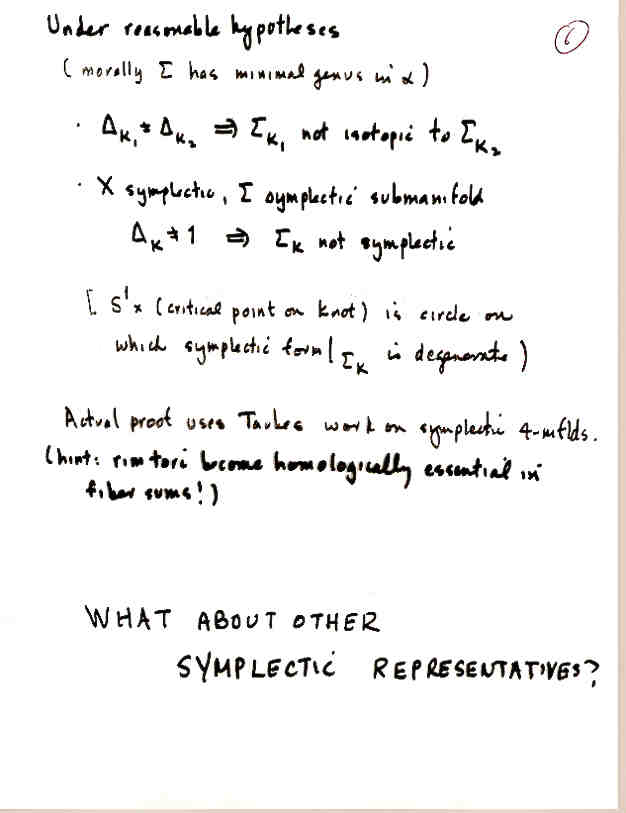 Under reasonable hypotheses
6
( morally Σ has minimal genus in α )
· Δ_K₁ ≠ Δ_K₂ ⇒ Σ_K₁ not isotopic to Σ_K₂
· X symplectic, Σ symplectic submanifold
Δ_K ≠ 1 ⇒ Σ_K not symplectic
[ S¹ × (critical point on knot) is circle on
which symplectic form|_Σ_K is degenerate )
Actual proof uses Taubes work on symplectic 4-mflds.
(hint: rim tori become homologically essential in
fiber sums!)
WHAT ABOUT OTHER
SYMPLECTIC REPRESENTATIVES?